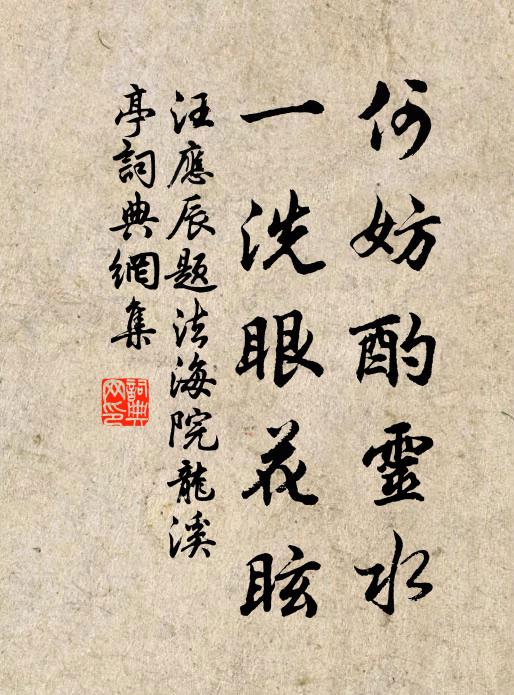 何妨酌靈水
一洗眼花眩
汪應辰題法海院龍溪
亭詞典網集
詞典網印